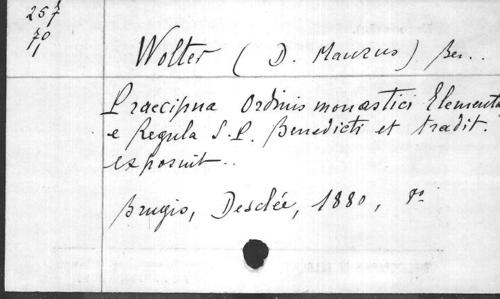 257
70
1
Wolter (D. Maurus) Ben..
Praecipua Ordinis monastici Elementa
e Regula S. P. Benedicti et tradit.
exposuit..
Brugis, Desclée, 1880, 8º